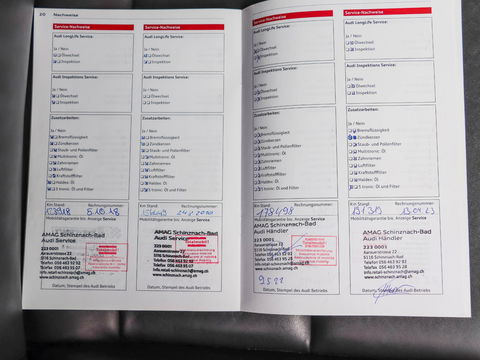 20 Nachweise
Service-Nachweise
Audi LongLife Service:
Ja / Nein
Ölwechsel
Inspektion
Audi Inspektions Service:
Ja / Nein
Ölwechsel
Inspektion
Zusatzarbeiten:
Ja / Nein
Bremsflüssigkeit
Zündkerzen
Staub- und Pollenfilter
Multitronic: Öl
Zahnriemen
Luftfilter
Kraftstofffilter
Haldex: Öl
S tronic: Öl und Filter
Km Stand: Rechnungsnummer:
Mobilitätsgarantie bis: Anzeige Service
AMAG Schinznach-Bad
Audi Service
223 0001
Aarauerstrasse 22
5116 Schinznach-Bad
Telefon 056 463 92 92
info.retail-schinznach@amag.ch
www.schinznach.amag.ch
Datum, Stempel des Audi Betriebs
Service-Nachweise
Audi LongLife Service:
Ja / Nein
Ölwechsel
Inspektion
Audi Inspektions Service:
Ja / Nein
Ölwechsel
Inspektion
Zusatzarbeiten:
Ja / Nein
Bremsflüssigkeit
Zündkerzen
Staub- und Pollenfilter
Multitronic: Öl
Zahnriemen
Luftfilter
Kraftstofffilter
Haldex: Öl
S tronic: Öl und Filter
Km Stand: Rechnungsnummer:
Mobilitätsgarantie bis: Anzeige Service
AMAG Schinznach-Bad
Audi Service
223 0001
Aarauerstrasse 22
5116 Schinznach-Bad
Telefon 056 463 92 92
info.retail-schinznach@amag.ch
www.schinznach.amag.ch
Datum, Stempel des Audi Betriebs
Service-Nachweise
Audi LongLife Service:
Ja / Nein
Ölwechsel
Inspektion
Audi Inspektions Service:
Ja / Nein
Ölwechsel
Inspektion
Zusatzarbeiten:
Ja / Nein
Bremsflüssigkeit
Zündkerzen
Staub- und Pollenfilter
Multitronic: Öl
Zahnriemen
Luftfilter
Kraftstofffilter
Haldex: Öl
S tronic: Öl und Filter
Km Stand: Rechnungsnummer:
178498
Mobilitätsgarantie bis: Anzeige Service
AMAG Schinznach-Bad
Audi Händler
223 0001
Aarauerstrasse 22
5116 Schinznach-Bad
Telefon 056 463 92 92
info.retail-schinznach@amag.ch
www.schinznach.amag.ch
Datum, Stempel des Audi Betriebs
Service-Nachweise
Audi LongLife Service:
Ja / Nein
Ölwechsel
Inspektion
Audi Inspektions Service:
Ja / Nein
Ölwechsel
Inspektion
Zusatzarbeiten:
Ja / Nein
Bremsflüssigkeit
Zündkerzen
Staub- und Pollenfilter
Multitronic: Öl
Zahnriemen
Luftfilter
Kraftstofffilter
Haldex: Öl
S tronic: Öl und Filter
Km Stand: Rechnungsnummer:
Mobilitätsgarantie bis: Anzeige Service
AMAG Schinznach-Bad
Audi Händler
223 0001
Aarauerstrasse 22
5116 Schinznach-Bad
Telefon 056 463 92 92
info.retail-schinznach@amag.ch
www.schinznach.amag.ch
Datum, Stempel des Audi Betriebs